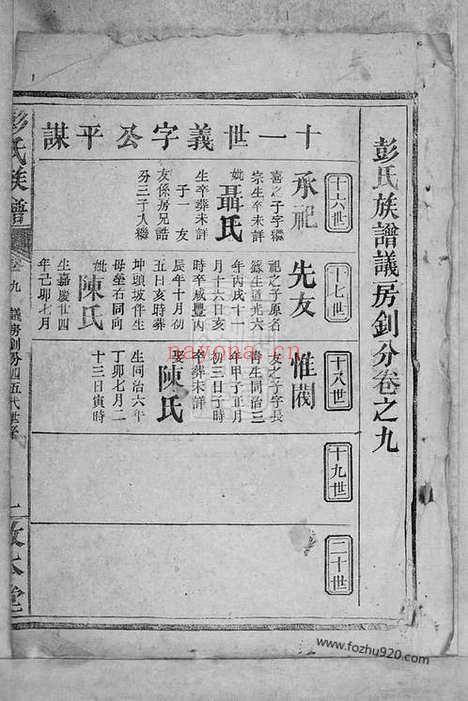 彭氏族譜議房釗分卷之九
十一世義字公平謀
十六世
承祀
喜之子字繼
宗生卒葬未詳
妣聶氏
生卒葬未詳
子一 友
友係房兄誥
分三子入繼
十七世
先友
祀之子原名
蘇生道光六
年丙戌十一
月十六日亥
時卒咸豐丙
辰年十月初
五日亥時葬
坤頭坡伴生
母塋右同向
妣陳氏
生嘉慶廿四
年己卯七月
十八世
惟閱
友之子字長
青生同治三
年甲子正月
初三日子時
卒葬未詳
娶陳氏
生同治六年
丁卯七月二
十三日寅時
十九世
二十世
彭氏族譜
卷九
議房釗分四五代世系
敦本堂
nayona.cn
www.fozhu920.com